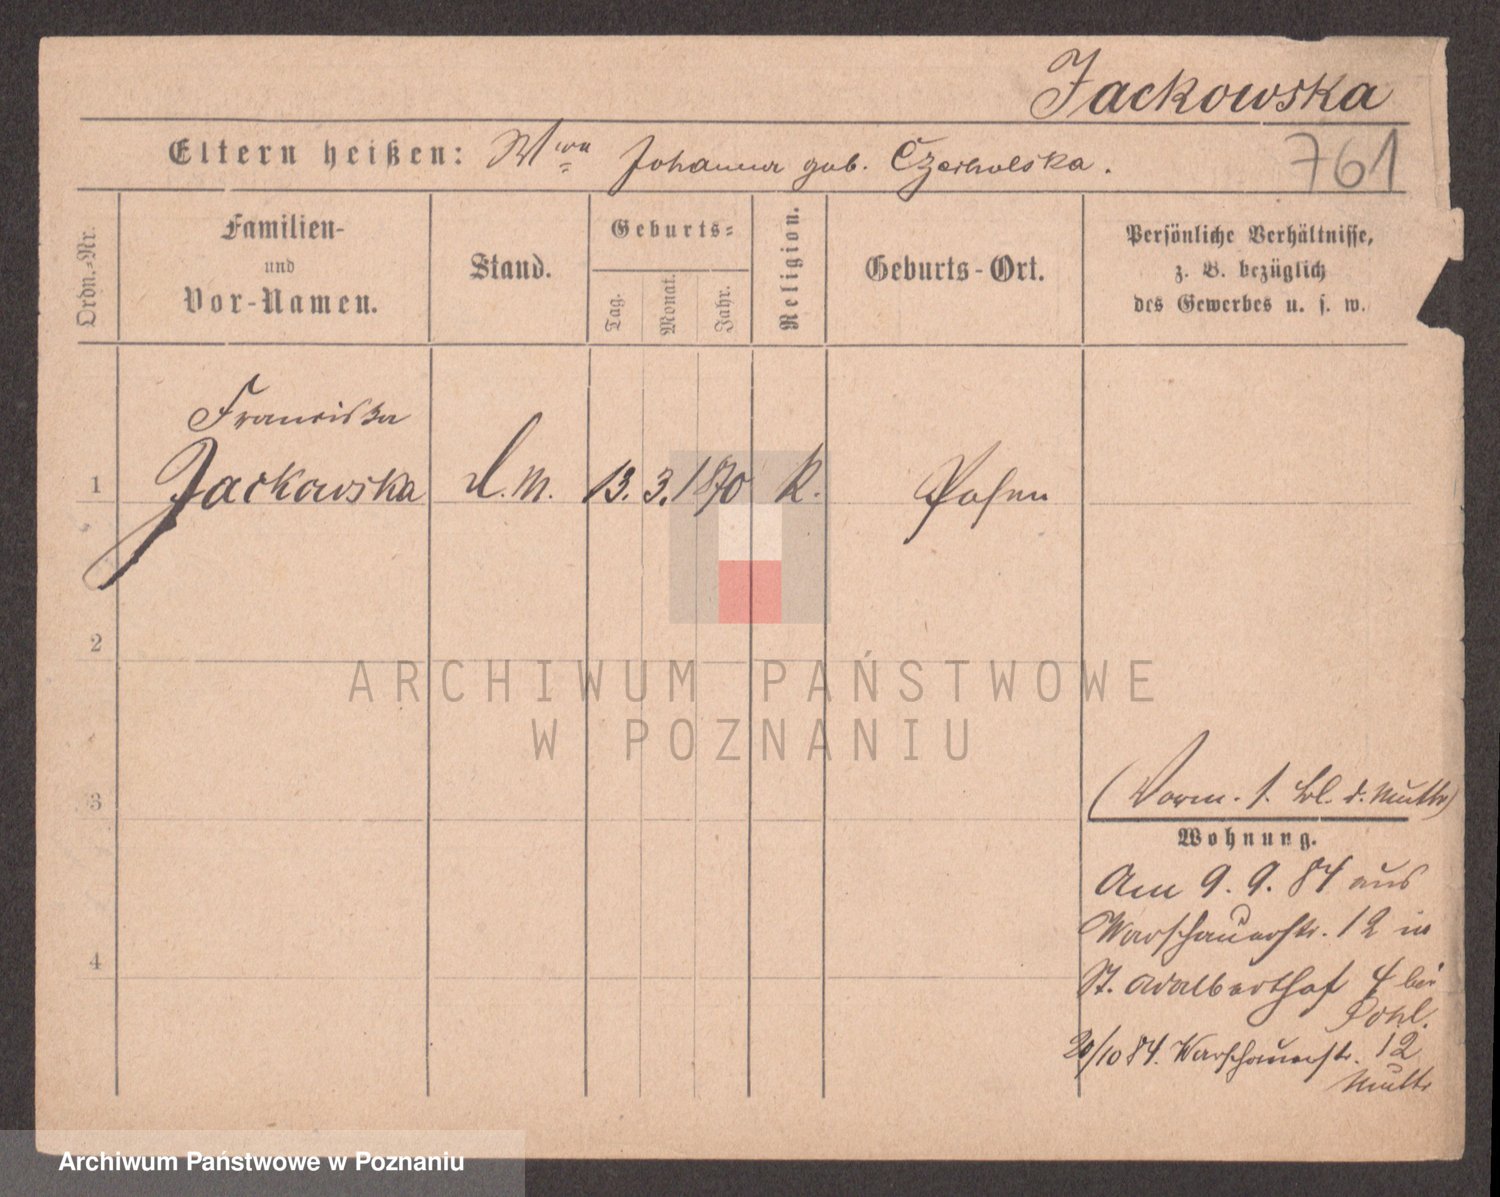 Jackowska
Eltern heißen: Wwe Johanna geb.
761
Ordn.-Nr.
Familien-
und
Vor-Namen.
Stand.
Geburts-
Tag.
Monat.
Jahr.
Religion.
Geburts-Ort.
Persönliche Verhältnisse,
z. B. bezüglich
des Gewerbes u. s. w.
Franciska
1 Jackowska D. M. 13. 3. 1870 k. Posen
2
ARCHIWUM PAŃSTWOWE
W POZNANIU
3
(Vorm. s. Bl. d. Mutter)
Wohnung.
Am 9. 9. 84 aus
Warschauerstr. 12 in
4
St. Adalberthof 4 bei
Pohl.
20/10 84. Warschauerstr. 12
Mutter
Archiwum Państwowe w Poznaniu